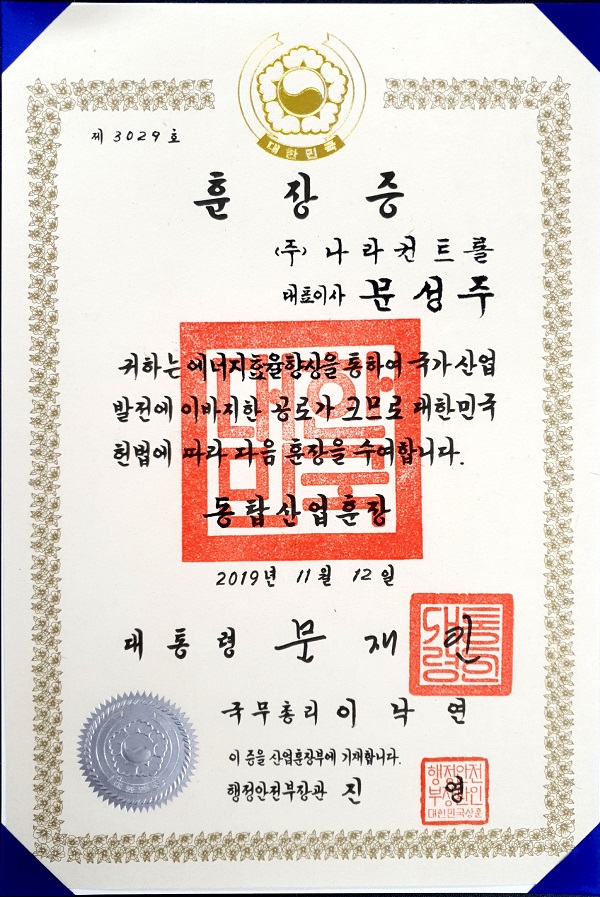 대한민국
제 3029 호
훈장증
(주) 나라컨트롤
대표이사 문성주
귀하는 에너지효율향상을 통하여 국가산업
발전에 이바지한 공로가 크므로 대한민국
헌법에 따라 다음 훈장을 수여합니다.
동탑산업훈장
2019년 11월 12일
대통령 문재인
국무총리 이낙연
이 증을 산업훈장부에 기재합니다.
행정안전부장관 진영
대한민국
대통령의인
행정안전
부장관인
대한민국상훈